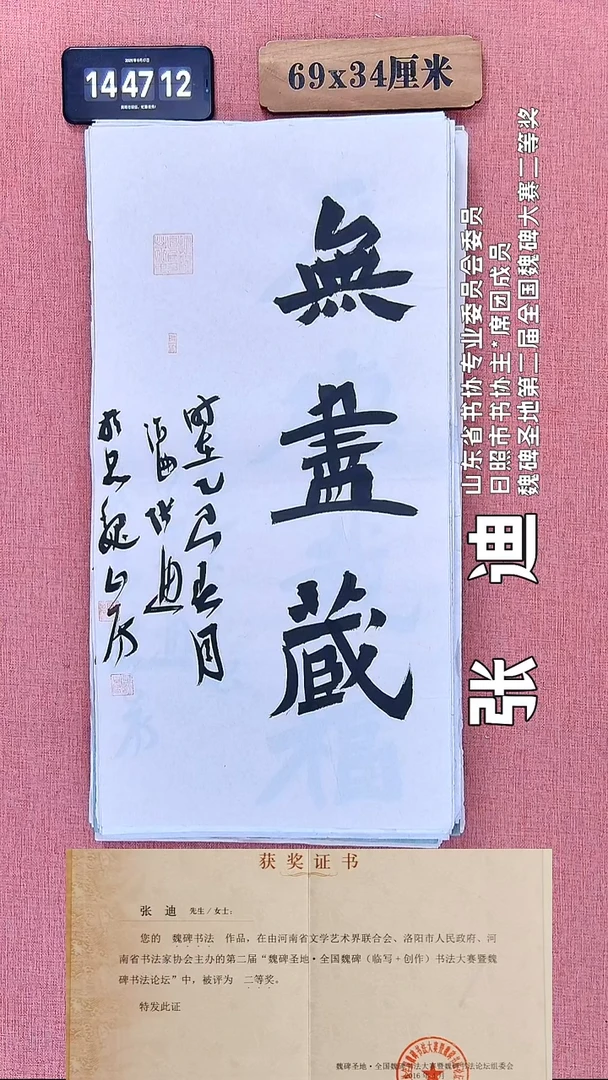 14 47 12
69x34厘米
無盡蔵
時在乙巳春月
張迪
於思魏山房
山东省书协专业委员会委员
日照市书协主*席团成员
魏碑圣地第二届全国魏碑大赛二等奖
张 迪
获奖证书
张 迪 先生/女士:
您的 魏碑书法 作品,在由河南省文学艺术界联合会、洛阳市人民政府、河
南省书法家协会主办的第二届“魏碑圣地·全国魏碑(临写+创作)书法大赛暨魏
碑书法论坛”中,被评为 二等奖。
特发此证
魏碑圣地·全国魏碑书法大赛暨魏碑书法论坛组委会